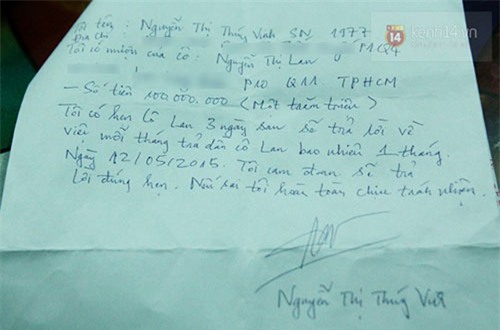 Tôi tên : Nguyễn Thị Thúy Vinh SN 1977
Địa chỉ : P1Q4
Tôi có mượn của cô : Nguyễn Thị Lan
P10 Q11 TPHCM
– Số tiền 100.000.000 (Một trăm triệu)
Tôi có hẹn cô Lan 3 ngày sau sẽ trả lời về
việc mỗi tháng trả dần cô Lan bao nhiêu 1 tháng.
Ngày 12/05/2015. Tôi cam đoan sẽ trả
lời đúng hẹn. Nếu sai tôi hoàn toàn chịu trách nhiệm.
Nguyễn Thị Thúy Vinh
kenh14.vn